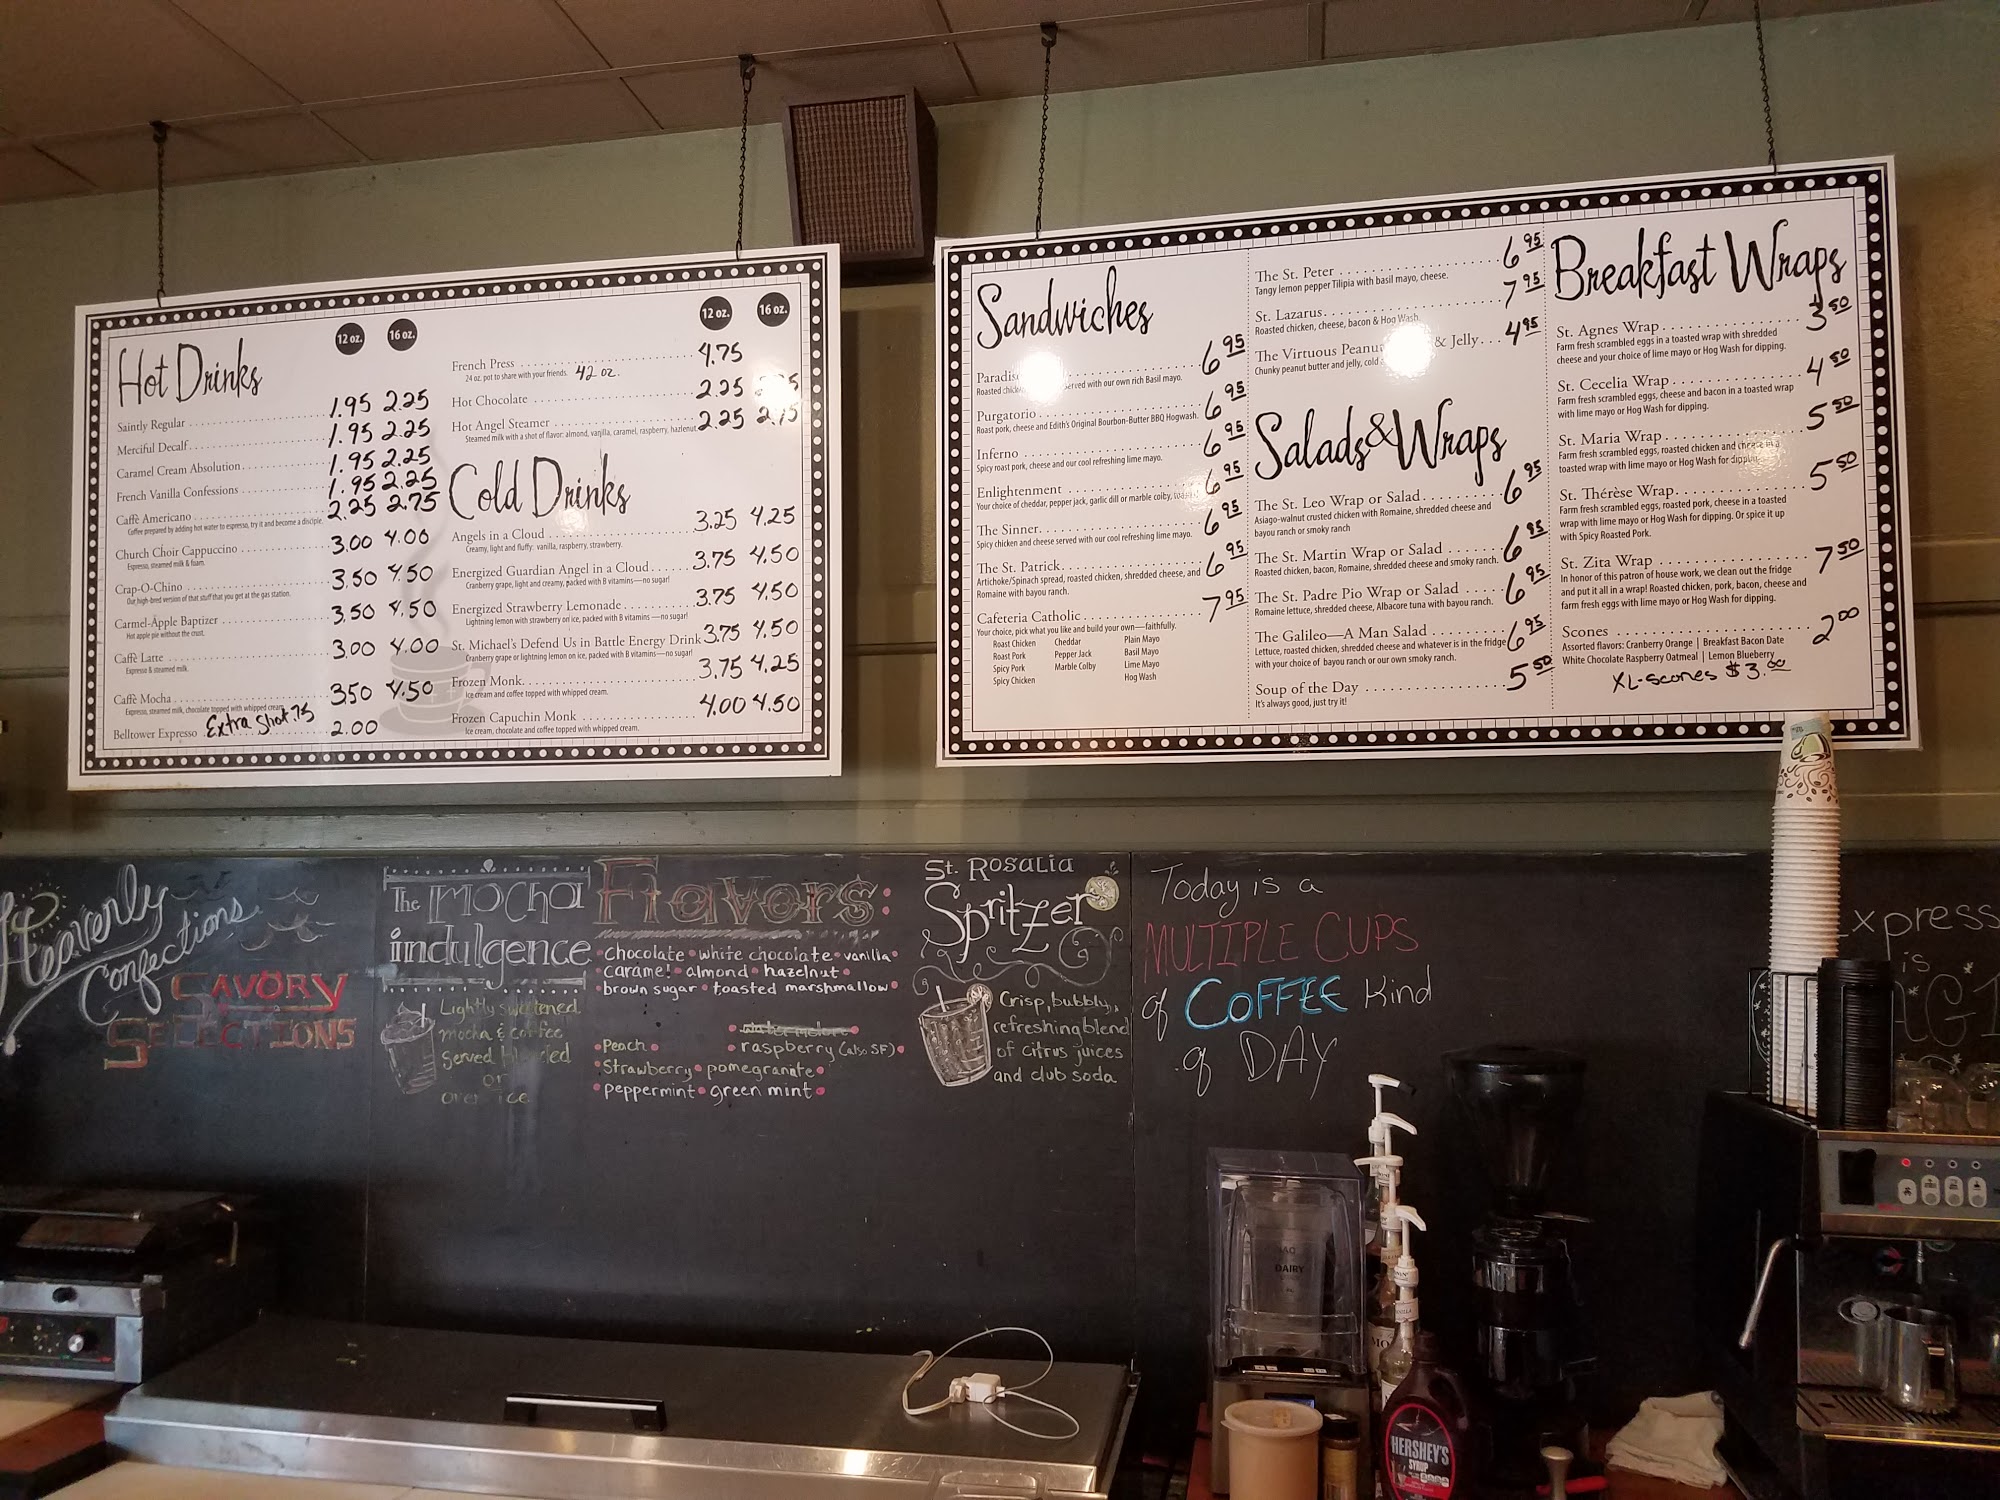 12 oz. 16 oz.
Hot Drinks
Saintly Regular 1.95 2.25
Merciful Decalf 1.95 2.25
Caramel Cream Absolution 1.95 2.25
French Vanilla Confessions 1.95 2.25
Caffè Americano 2.25 2.75
Coffee prepared by adding hot water to espresso, try it and become a disciple.
Church Choir Cappuccino 3.00 4.00
Espresso, steamed milk & foam.
Crap-O-Chino 3.50 4.50
Our high-bred version of that stuff that you get at the gas station.
Carmel-Apple Baptizer 3.50 4.50
Hot apple pie without the crust.
Caffè Latte 3.00 4.00
Espresso & steamed milk.
Caffè Mocha 3.50 4.50
Espresso, steamed milk, chocolate topped with whipped cream.
Belltower Espresso Extra Shot .75 2.00
12 oz. 16 oz.
French Press 4.75
24 oz. pot to share with your friends. 42 oz.
Hot Chocolate 2.25
Hot Angel Steamer 2.25 2.75
Steamed milk with a shot of flavor: almond, vanilla, caramel, raspberry, hazelnut
Cold Drinks
Angels in a Cloud 3.25 4.25
Creamy, light and fluffy: vanilla, raspberry, strawberry.
Energized Guardian Angel in a Cloud 3.75 4.50
Cranberry grape, light and creamy, packed with B vitamins—no sugar!
Energized Strawberry Lemonade 3.75 4.50
Lightning lemon with strawberry on ice, packed with B vitamins—no sugar!
St. Michael's Defend Us in Battle Energy Drink 3.75 4.50
Cranberry grape or lightning lemon on ice, packed with B vitamins—no sugar!
Frozen Monk 3.75 4.25
Ice cream and coffee topped with whipped cream.
Frozen Capuchin Monk 4.00 4.50
Ice cream, chocolate and coffee topped with whipped cream.
Sandwiches
6 95
Roasted served with our own rich Basil mayo.
Purgatorio 6 95
Roast pork, cheese and Edith's Original Bourbon-Butter BBQ Hogwash.
Inferno 6 95
Spicy roast pork, cheese and our cool refreshing lime mayo.
Enlightenment 6 95
Your choice of cheddar, pepper jack, garlic dill or marble colby,
The Sinner 6 95
Spicy chicken and cheese served with our cool refreshing lime mayo.
The St. Patrick 6 95
Artichoke/Spinach spread, roasted chicken, shredded cheese, and
Romaine with bayou ranch.
Cafeteria Catholic 7 95
Your choice, pick what you like and build your own—faithfully.
Roast Chicken Cheddar Plain Mayo
Roast Pork Pepper Jack Basil Mayo
Spicy Pork Marble Colby Lime Mayo
Spicy Chicken Hog Wash
The St. Peter 6 95
Tangy lemon pepper Tilipia with basil mayo, cheese.
St. Lazarus 7 95
Roasted chicken, cheese, bacon & Hog Wash.
The Virtuous Peanut & Jelly 4 95
Chunky peanut butter and jelly, cold
Salads & Wraps
The St. Leo Wrap or Salad 6 95
Asiago-walnut crusted chicken with Romaine, shredded cheese and
bayou ranch or smoky ranch
The St. Martin Wrap or Salad 6 95
Roasted chicken, bacon, Romaine, shredded cheese and smoky ranch.
The St. Padre Pio Wrap or Salad 6 95
Romaine lettuce, shredded cheese, Albacore tuna with bayou ranch.
The Galileo—A Man Salad 6 95
Lettuce, roasted chicken, shredded cheese and whatever is in the fridge
with your choice of bayou ranch or our own smoky ranch.
Soup of the Day 5 50
It's always good, just try it!
Breakfast Wraps
St. Agnes Wrap 3 50
Farm fresh scrambled eggs in a toasted wrap with shredded
cheese and your choice of lime mayo or Hog Wash for dipping.
St. Cecelia Wrap 4 50
Farm fresh scrambled eggs, cheese and bacon in a toasted wrap
with lime mayo or Hog Wash for dipping.
St. Maria Wrap 5 50
Farm fresh scrambled eggs, roasted chicken and cheese in a
toasted wrap with lime mayo or Hog Wash for dipping.
St. Thérèse Wrap 5 50
Farm fresh scrambled eggs, roasted pork, cheese in a toasted
wrap with lime mayo or Hog Wash for dipping. Or spice it up
with Spicy Roasted Pork.
St. Zita Wrap 7 50
In honor of this patron of house work, we clean out the fridge
and put it all in a wrap! Roasted chicken, pork, bacon, cheese and
farm fresh eggs with lime mayo or Hog Wash for dipping.
Scones 2 00
Assorted flavors: Cranberry Orange | Breakfast Bacon Date
White Chocolate Raspberry Oatmeal | Lemon Blueberry
XL-Scones $3.00
Heavenly
Confections
Savory
Selections
The Mocha
indulgence
Lightly sweetened
mocha & coffee
Served blended
or
over ice
Flavors:
chocolate • white chocolate • vanilla •
caramel • almond • hazelnut •
brown sugar • toasted marshmallow •
watermelon
Peach • raspberry (also SF) •
Strawberry • pomegranate •
peppermint • green mint •
St. Rosalia
Spritzer
Crisp, bubbly,
refreshing blend
of citrus juices
and club soda
Today is a
MULTIPLE CUPS
of COFFEE Kind
of DAY
xpress
is
DAIRY
HERSHEY'S
SYRUP